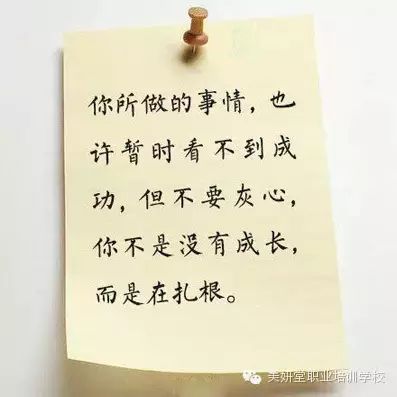 你所做的事情，也
许暂时看不到成
功，但不要灰心，
你不是没有成长，
而是在扎根。
美妍堂职业培训学校